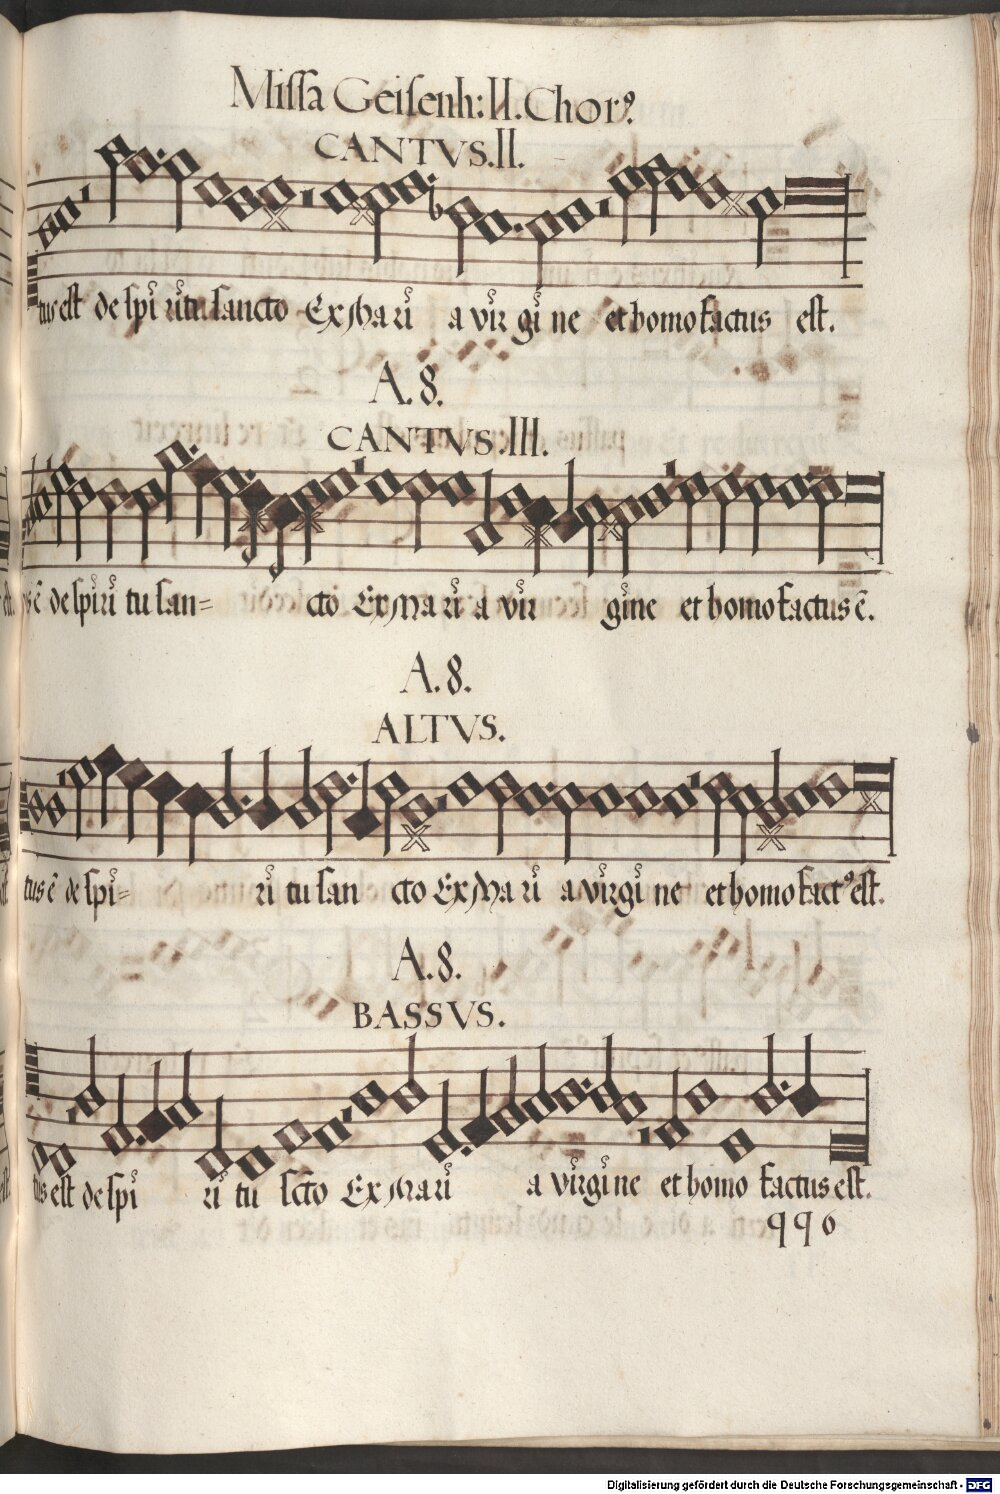 Missa Geisenh: II. Chor9.
CANTVS. II.
tus est de spi ritu sancto Ex Mari a vir gi ne et homo factus est.
A. 8.
CANTVS. III.
s ē de spiri tu san= cto Ex Mari a vir gine et homo factus ē.
A. 8.
ALTVS.
tus ē de spi= ri tu san cto Ex Ma ri a virgi ne et homo fact9 est.
A. 8.
BASSVS.
tus est de spi ri tu scto Ex Mari a virgine et homo factus est.
996
Digitalisierung gefördert durch die Deutsche Forschungsgemeinschaft - DFG